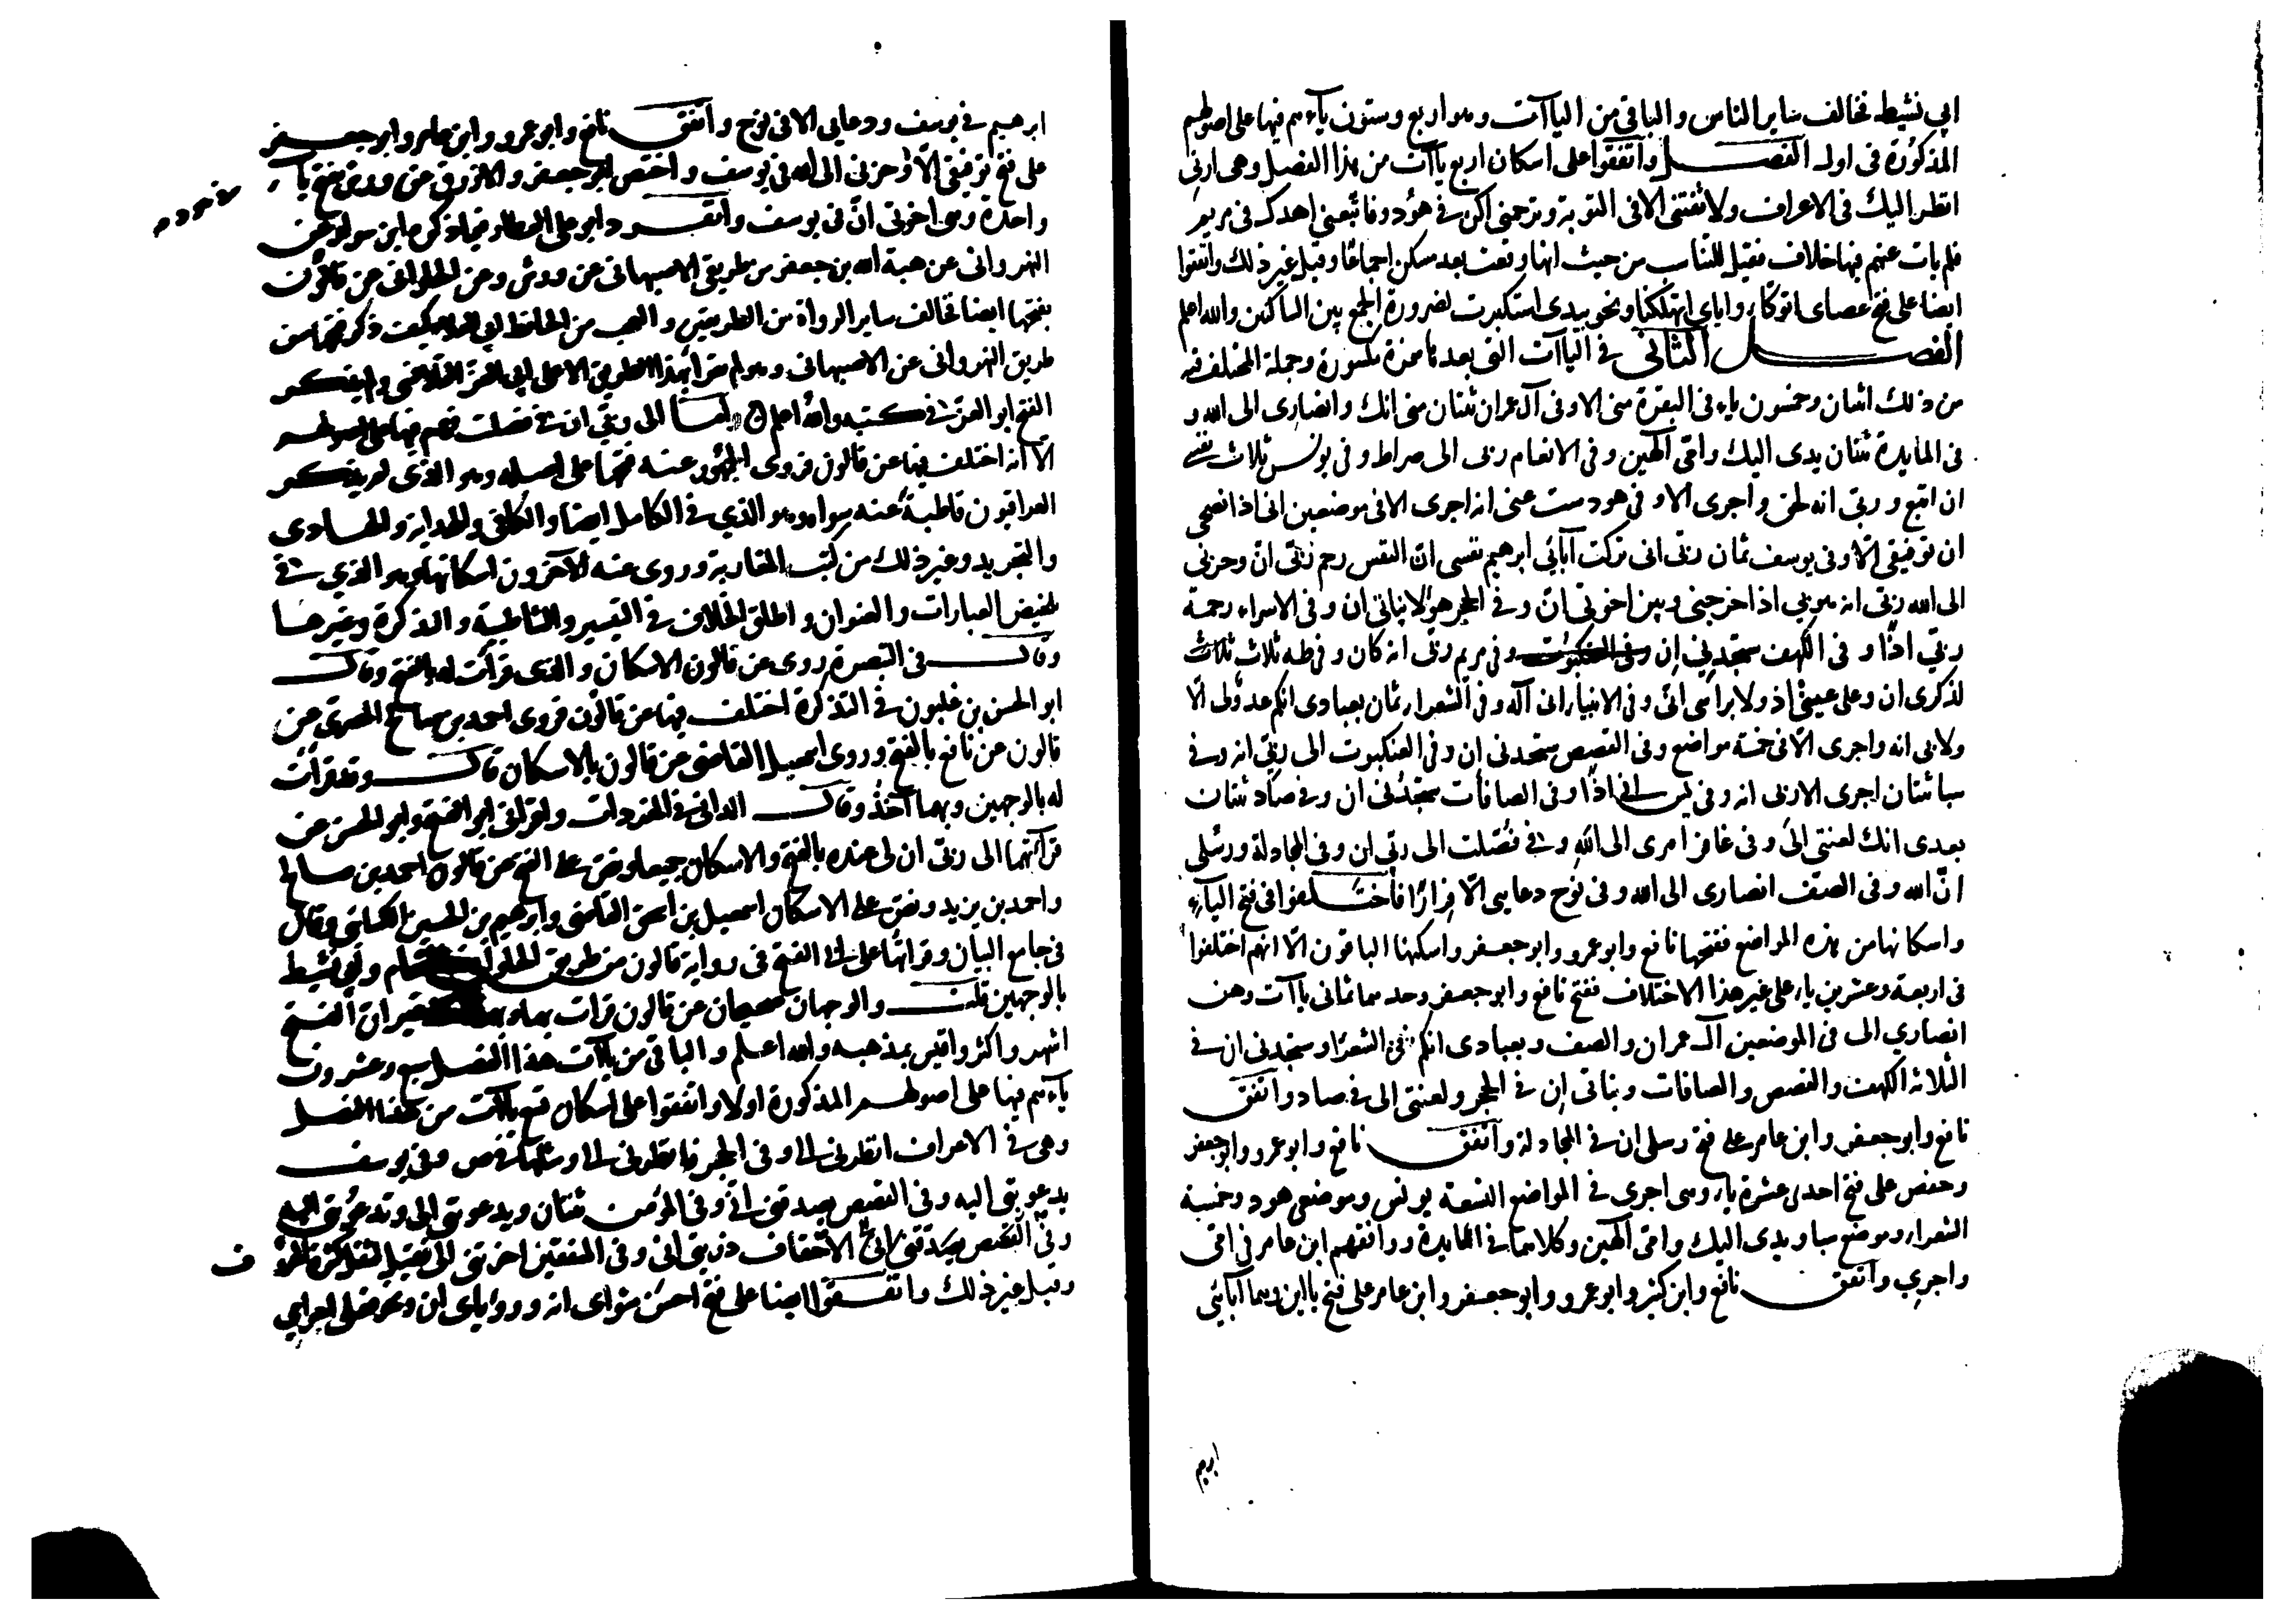 ابى نشيط فخالف ساير الناس والباقى من الياآت وهو اربع وستون ياء هم فيها على اصولهم
المذكورة فى اول الفصل واتفقوا على اسكان اربع ياآت من هذا الفصل وهى ارنى
انظر اليك فى الاعراف ولا تفتنى الا فى التوبة وترحمنى اكن فى هود وفاتبعنى اهدك فى مريم
فلم يات عنهم فيها خلاف فقيل للتناسب من حيث انها وقعت بعد مسكن اجماعا وقيل غير ذلك واتفقوا
ايضا على فتح عصاى اتوكأ واياى اتهلكنا ونحو بيدى استكبرت لضرورة الجمع بين الساكنين والله اعلم
الفصل الثانى فى الياآت التى بعدها همزة مكسورة وجملة المختلف فيه
من ذلك اثنان وخمسون ياء فى البقرة منى الا وفى آل عمران ثنتان منى انك وانصارى الى الله و
فى المايدة ثنتان يدى اليك وامى الهين وفى الانعام ربى الى صراط وفى يونس ثلاث نفسى
ان اتبع وربى انه لحق واجرى الا وفى هود ست عنى انه اجرى الا فى موضعين انى اذا نصحى
ان توفيقى الا وفى يوسف ثمان ربى انى تركت آبائى ابرهيم نفسى ان النفس رحم ربى ان وحزنى
الى الله ربى انه هو بى اذ اخرجنى وبين اخوتى ان وفى الحجر هؤلا بناتى ان وفى الاسراء رحمة
ربى اذا و فى الكهف ستجدنى ان وفى العنكبوت وفى مريم ربى انه كان وفى طه ثلاث ثلاث
لذكرى ان وعلى عينى اذ ولا براسى انى وفى الانبياء انى اله وفى الشعراء ثمان بعبادى انكم عدو لى الا
ولابى انه واجرى الا فى خمسة مواضع وفى القصص ستجدنى ان وفى العنكبوت الى ربى انه وفى
سبا ثنتان اجرى الا ربى انه وفى يس انى اذا وفى الصافات ستجدنى ان وفى صاد ثنتان
بعدى انك لعنتى الى وفى غافر امرى الى الله وفى فصلت الى ربى ان وفى المجادلة ورسلى
ان الله وفى الصف انصارى الى الله وفى نوح دعايى الا فرارا فاختلفوا فى فتح الياء
واسكانها من هذه المواضع ففتحها نافع وابو عمرو وابو جعفر واسكنها الباقون الا انهم اختلفوا
فى اربعة وعشرين ياء على غير هذا الاختلاف ففتح نافع وابو جعفر وحدهما ثمانى ياآت وهن
انصارى الى فى الموضعين آل عمران والصف وبعبادى انكم فى الشعرا وستجدنى ان فى
الثلاثة الكهف والقصص والصافات وبناتى ان فى الحجر ولعنتى الى فى صاد واتفق
نافع وابو جعفر وابن عامر على فتح رسلى ان فى المجادلة واتفق نافع وابو عمرو وابو جعفر
وحفص على فتح احدى عشرة ياء وهى اجرى فى المواضع التسعة يونس وموضعى هود وخمسة
الشعراء وموضع سبا ويدى اليك وامى الهين وكلاهما فى المايدة ووافقهم ابن عامر فى امى
واجرى واتفق نافع وابن كثير وابو عمرو وابو جعفر وابن عامر على فتح ياءين وهما آبائى
ابرهيم
ابرهيم فى يوسف ودعايى الا فى نوح واتفق نافع وابو عمرو وابن عامر وابو جعفر
على فتح توفيقى الا وحزنى الى الله فى يوسف واختص ابو جعفر والازرق عن ورش بفتح ياء
واحدة وهى اخوتى ان فى يوسف وانفرد ابو على العطار فيما ذكره ابن سوار عن
النهروانى عن هبة الله بن جعفر من طريق الاصبهانى عن ورش وعن الحلوانى عن قالون
بفتحها ايضا فخالف ساير الرواة من الطريقين والعجب من الحافظ ابى العلا كيف ذكر فتحها من
طريق النهروانى عن الاصبهانى وهو لم يقرا بهذا الطريق الا على ابى العز القلانسى ولم يذكر
الفتح ابو العز فى كتبه والله اعلم واما الى ربى ان فى فصلت فهم فيها على اصولهم
الا انه اختلف فيها عن قالون فروى الجمهور عنه فتحها على اصله وهو الذى لم يذكر
العراقيون قاطبة عنه سواه وهو الذى فى الكامل ايضا والكافى والهداية والهادى
والتجريد وغير ذلك من كتب المغاربة وروى عنه الآخرون اسكانها وهو الذى فى
تلخيص العبارات والعنوان واطلق الخلاف فى التيسير والشاطبية والتذكرة وغيرها
وقال فى التبصرة روى عن قالون الاسكان والذى قرات له بالفتح وقال
ابو الحسن بن غلبون فى التذكرة اختلف فيها عن قالون فروى احمد بن صالح المصرى عن
قالون عن نافع بالفتح وروى اسمعيل القاضى عن قالون بالاسكان قال وقد قرات
له بالوجهين وبهما آخذ وقال الدانى فى المفردات واقرانى ابو الفتح وابو الحسن عن
قراءتهما الى ربى ان لى عنده بالفتح والاسكان جميعا ونص على الفتح عن قالون احمد بن صالح
واحمد بن يزيد ونص على الاسكان اسمعيل بن اسحق القاضى وابرهيم بن الحسين الكسائى وقال
فى جامع البيان وقراتها على الفتح فى رواية قالون من طريق الحلوانى وابى نشيط
بالوجهين قلت والوجهان صحيحان عن قالون قرات بهما غير ان الفتح
اشهر واكثر واقيس بمذهبه والله اعلم والباقى من ياآت هذا الفصل سبع وعشرون
ياء هم فيها على اصولهم المذكورة اولا واتفقوا على اسكان تسع ياآت من هذا الفصل
وهى فى الاعراف انظرنى الى وفى الحجر فانظرنى الى ومثلها فى ص وفى يوسف
يدعوننى اليه وفى القصص يصدقنى انى وفى المؤمن ثنتان ويدعوننى الى وتدعوننى اليه
وفى القصص يصدقنى انى الاحقاف ذريتى انى وفى المنفقين اخرتنى الى فقيل لثقل كثرة الحروف
وقيل غير ذلك واتفقوا ايضا على فتح احسن مثواى انه ورؤياى ان ونحو فعلى اجرامى